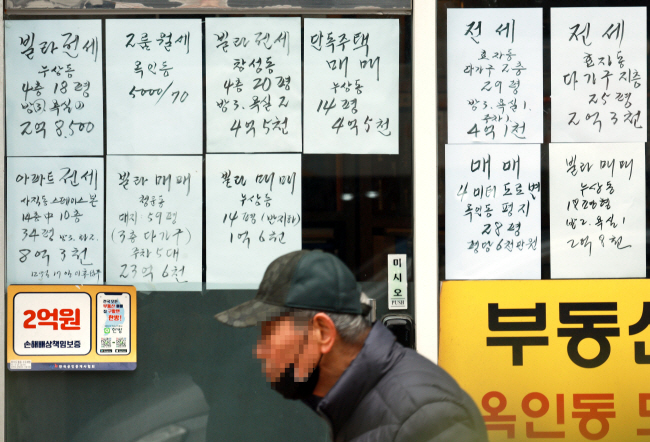 빌라 전세
누상동
4층 18평
방3. 욕실①
2억 8,500
2룸 월세
옥인동
5000/70
빌라 전세
창성동
4층 20평
방3. 욕실 2
4억 5천
단독주택
매매
누상동
14평
4억 5천
전세
효자동
다가구 2층
29평
방3. 욕실1.
주차1
4억 1천
전세
효자동
다가구 지층
25평
2억 3천
아파트 전세
사직동 스페이스본
14층 中 10층
34평
8억 3천
빌라 매매
대지 59평
(3층 다가구)
주차 5대
23억 6천
빌라 매매
누상동
14평 (반지하)
1억 6천
매매
4미터 도로변
옥인동 평지
28평
평당 6천만원
빌라 매매
누상동
18평형
방2. 욕실1
2억 8천
미시오
PUSH
2억원
손해배상책임보증
한방
부동산
옥인동